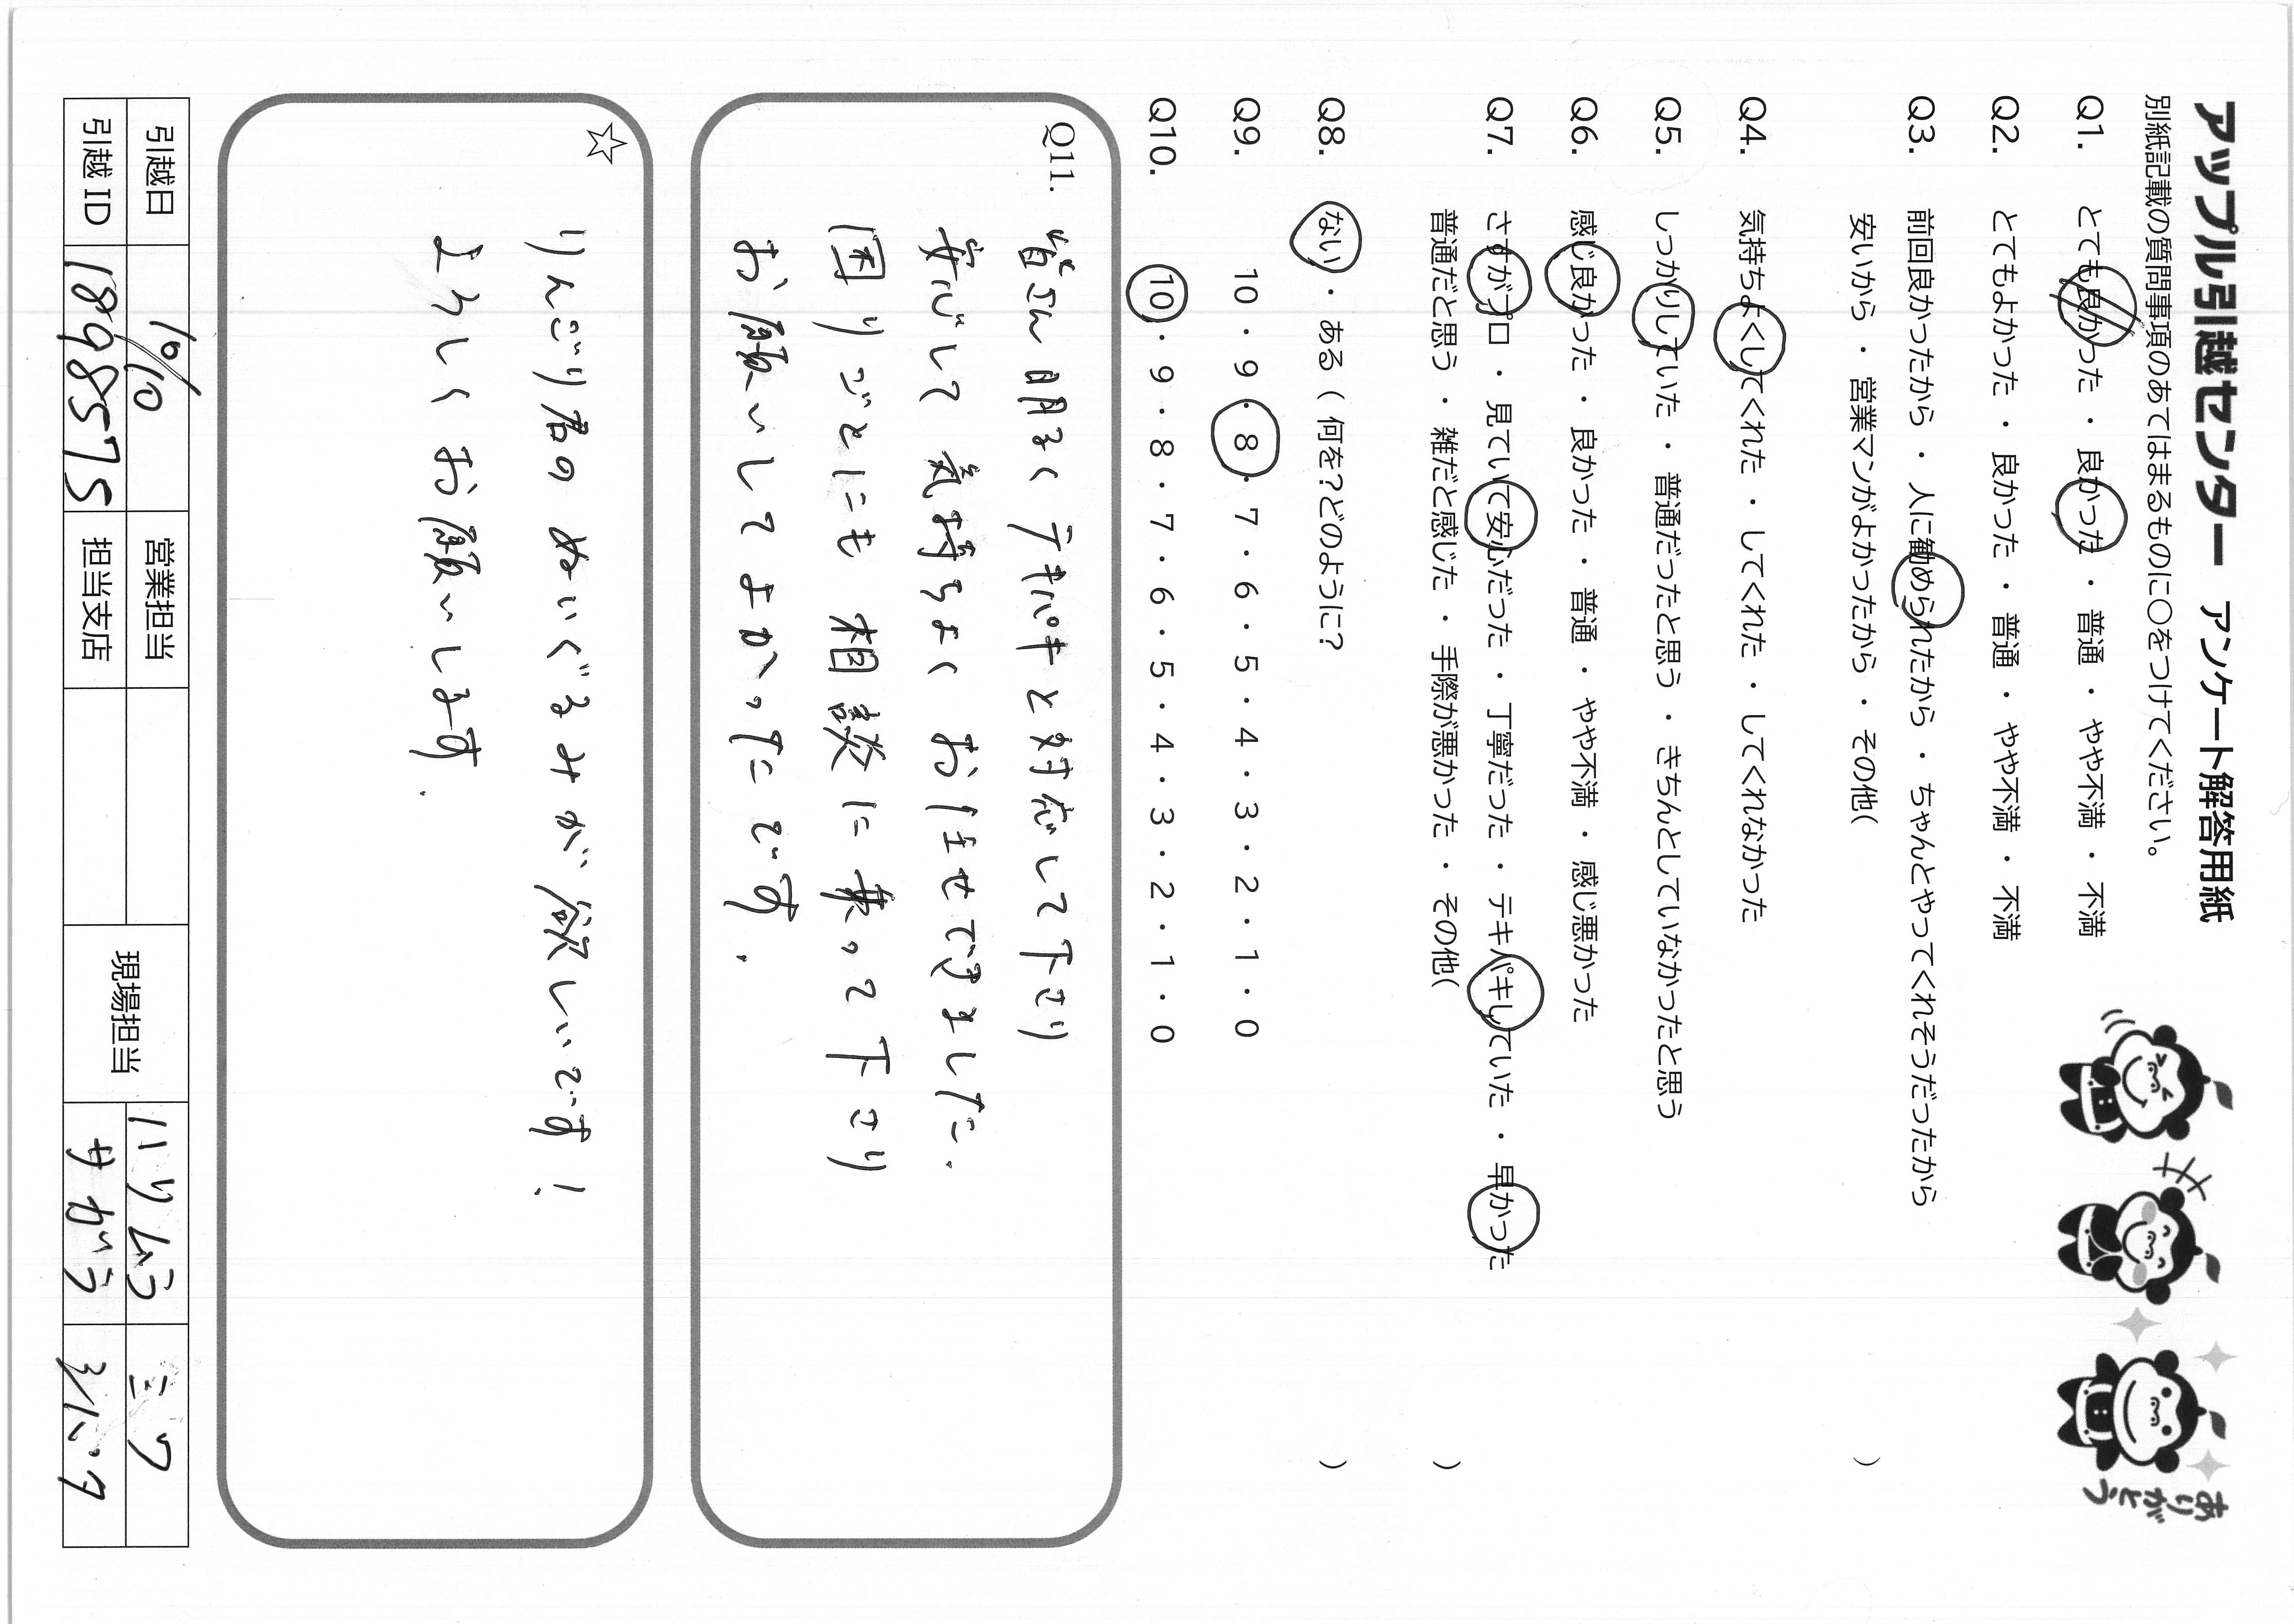 アップル引越センター アンケート解答用紙
別紙記載の質問事項のあてはまるものに○をつけてください。
Q1. とても良かった ・ 良かった ・ 普通 ・ やや不満 ・ 不満
Q2. とてもよかった ・ 良かった ・ 普通 ・ やや不満 ・ 不満
Q3. 前回良かったから ・ 人に勧められたから ・ ちゃんとやってくれそうだったから
安いから ・ 営業マンがよかったから ・ その他( )
Q4. 気持ちよくしてくれた ・ してくれた ・ してくれなかった
Q5. しっかりしていた ・ 普通だったと思う ・ きちんとしていなかったと思う
Q6. 感じ良かった ・ 良かった ・ 普通 ・ やや不満 ・ 感じ悪かった
Q7. さすがプロ ・ 見ていて安心だった ・ 丁寧だった ・ テキパキしていた ・ 早かった
普通だと思う ・ 雑だと感じた ・ 手際が悪かった ・ その他( )
Q8. ない ・ ある ( 何を?どのように? )
Q9. 10 ・ 9 ・ 8 ・ 7 ・ 6 ・ 5 ・ 4 ・ 3 ・ 2 ・ 1 ・ 0
Q10. 10 ・ 9 ・ 8 ・ 7 ・ 6 ・ 5 ・ 4 ・ 3 ・ 2 ・ 1 ・ 0
Q11. 皆さん明るくテキパキと対応して下さり
安心して気持ちよくお任せできました.
困りごとにも相談に乗って下さり
お願いしてよかったです.
☆ りんごり君のぬいぐるみが欲しいです!
よろしくお願いします.
引越日 10/10 営業担当 現場担当 ハリムラ ミワ
引越 ID 1898575 担当支店 サガラ
ありがとう